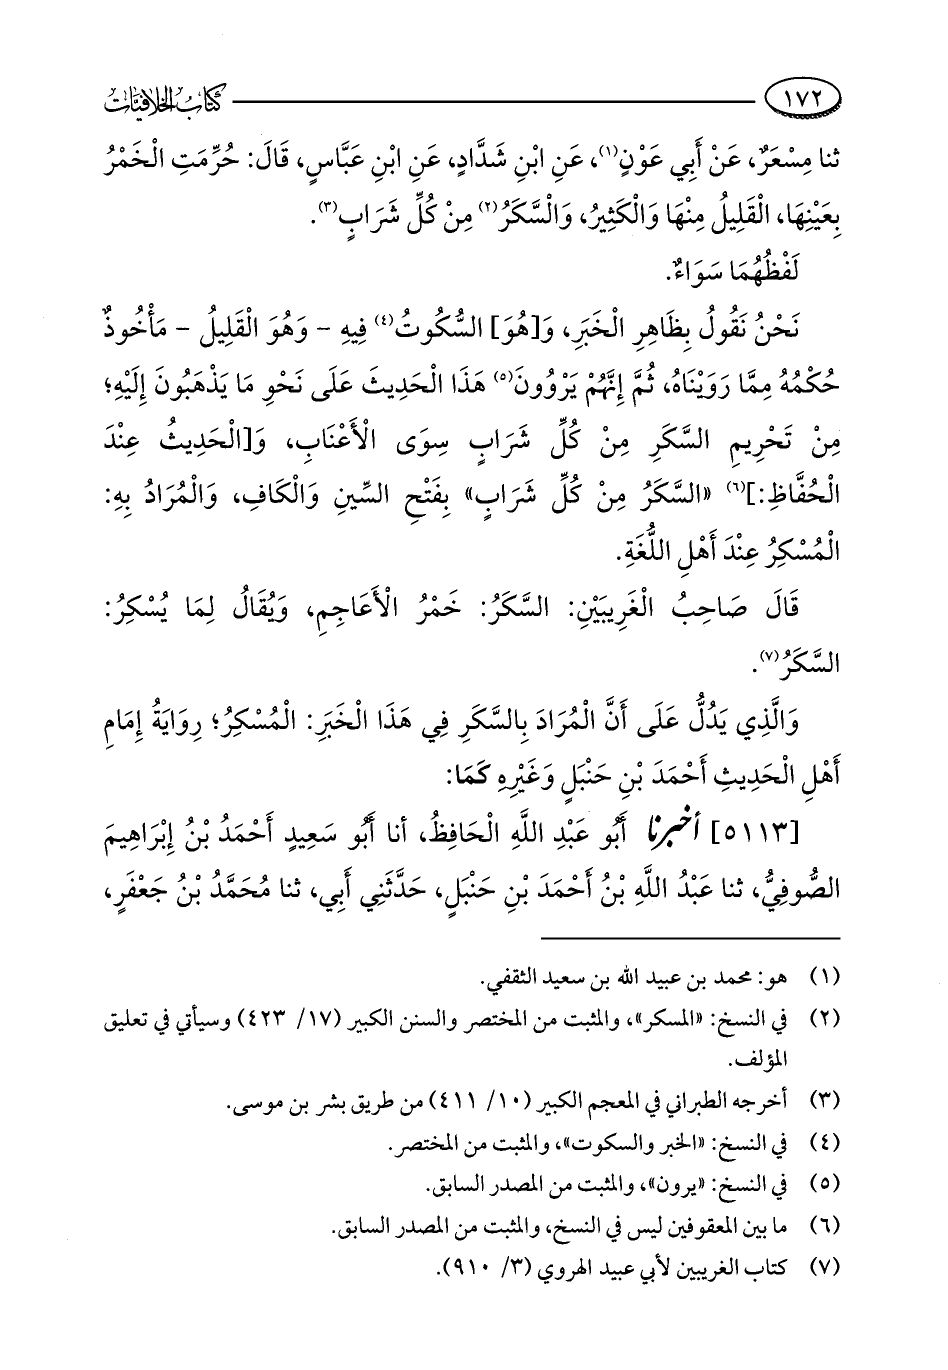 ١٧٢ كتاب الخلافيات
ثنا مِسْعَرٌ، عَنْ أَبِي عَوْنٍ(١)، عَنِ ابْنِ شَدَّادٍ، عَنِ ابْنِ عَبَّاسٍ، قَالَ: حُرِّمَتِ الْخَمْرُ
بِعَيْنِهَا، الْقَلِيلُ مِنْهَا وَالْكَثِيرُ، وَالْسَّكَرُ(٢) مِنْ كُلِّ شَرَابٍ(٣).
لَفْظُهُمَا سَوَاءٌ.
نَحْنُ نَقُولُ بِظَاهِرِ الْخَبَرِ، وَ[هُوَ] السُّكُوتُ(٤) فِيهِ - وَهُوَ الْقَلِيلُ - مَأْخُوذٌ
حُكْمُهُ مِمَّا رَوَيْنَاهُ، ثُمَّ إِنَّهُمْ يَرْوُونَ(٥) هَذَا الْحَدِيثَ عَلَى نَحْوِ مَا يَذْهَبُونَ إِلَيْهِ؛
مِنْ تَحْرِيمِ السَّكَرِ مِنْ كُلِّ شَرَابٍ سِوَى الْأَعْنَابِ، وَ[الْحَدِيثُ عِنْدَ
الْحُفَّاظِ:](٦) «السَّكَرُ مِنْ كُلِّ شَرَابٍ» بِفَتْحِ السِّينِ وَالْكَافِ، وَالْمُرَادُ بِهِ:
الْمُسْكِرُ عِنْدَ أَهْلِ اللُّغَةِ.
قَالَ صَاحِبُ الْغَرِيبَيْنِ: السَّكَرُ: خَمْرُ الْأَعَاجِمِ، وَيُقَالُ لِمَا يُسْكِرُ:
السَّكَرُ(٧).
وَالَّذِي يَدُلُّ عَلَى أَنَّ الْمُرَادَ بِالسَّكَرِ فِي هَذَا الْخَبَرِ: الْمُسْكِرُ؛ رِوَايَةُ إِمَامِ
أَهْلِ الْحَدِيثِ أَحْمَدَ بْنِ حَنْبَلٍ وَغَيْرِهِ كَمَا:
[٥١١٣] أخبرنا أَبُو عَبْدِ اللَّهِ الْحَافِظُ، أنا أَبُو سَعِيدٍ أَحْمَدُ بْنُ إِبْرَاهِيمَ
الصُّوفِيُّ، ثنا عَبْدُ اللَّهِ بْنُ أَحْمَدَ بْنِ حَنْبَلٍ، حَدَّثَنِي أَبِي، ثنا مُحَمَّدُ بْنُ جَعْفَرٍ،
(١) هو: محمد بن عبيد الله بن سعيد الثقفي.
(٢) في النسخ: «المسكر»، والمثبت من المختصر والسنن الكبير (١٧/ ٤٢٣) وسيأتي في تعليق
المؤلف.
(٣) أخرجه الطبراني في المعجم الكبير (١٠/ ٤١١) من طريق بشر بن موسى.
(٤) في النسخ: «الخبر والسكوت»، والمثبت من المختصر.
(٥) في النسخ: «يرون»، والمثبت من المصدر السابق.
(٦) ما بين المعقوفين ليس في النسخ، والمثبت من المصدر السابق.
(٧) كتاب الغريبين لأبي عبيد الهروي (٣/ ٩١٠).